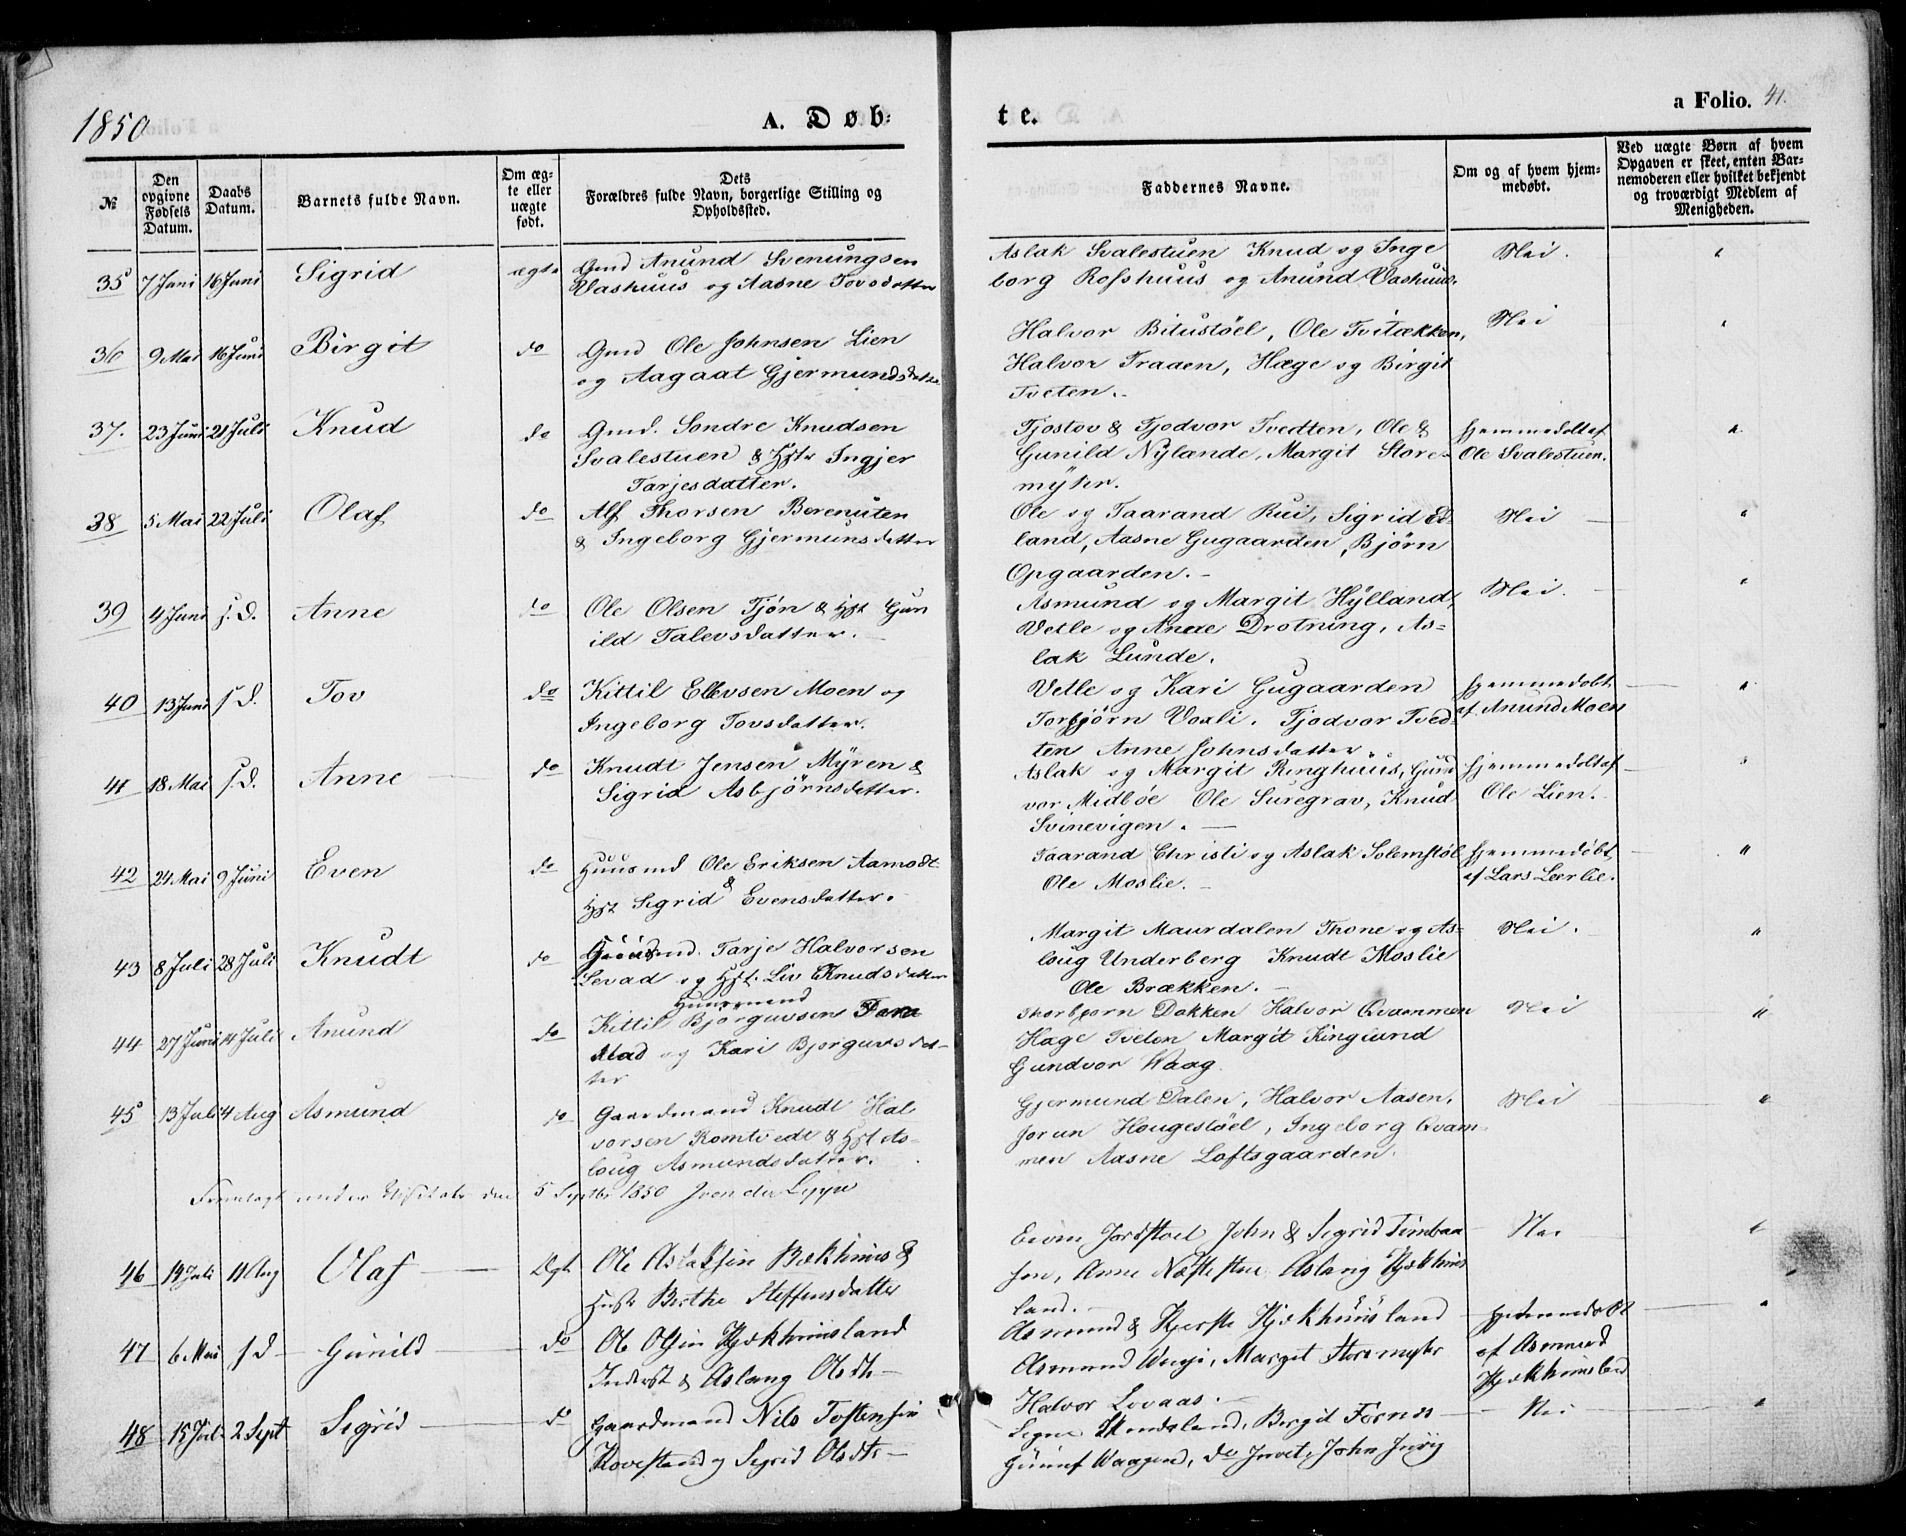 1850
A. Døb-
te.
a Folio. 41.
№
Den opgivne Fødsels Datum.
Daabs Datum.
Barnets fulde Navn.
Om ægte eller uægte født.
Dets Forældres fulde Navn, borgerlige Stilling og Opholdssted.
Faddernes Navne.
Om og af hvem hjemmedøbt.
Ved uægte Børn af hvem Opgaven er skeet, enten Barnemoderen eller hvilket bekjendt og troværdigt Medlem af Menigheden.
35 7 Juni 16 Juni Sigrid ægte Gmd Anund Svenungsen
Vashuus og Aasne Tovsdatter
Aslak Svalestuen Knud og Inge
borg Rofshuus og Anund Vashuus.
Nei.
36 9 Mai 16 Juni Birgit do Gmd Ole Johnsen Lien
og Aagaat Gjermundsdatter
Halvor Bitustøel, Ole Tvitækken,
Halvor Traaen, Hæge og Birgit
Tveten.
Nei
37. 23 Juni 21 Juli Knud do Gmd. Søndre Knudsen
Svalestuen & Hst Ingjer
Tarjesdatter.
Tjostov & Tjodvor Tvedten, Ole &
Gunild Nylande, Margit Store-
myhr.
hjemmedøbt af
Ole Svalestuen.
38 5 Mai 22 Juli Olaf do Alf Thorsen Berenuten
& Ingeborg Gjermunsdatter
Ole og Taarand Rui, Sigrid Ed-
land, Aasne Gugaarden, Bjørn
Opgaarden.
Nei
39 4 Juni s. D. Anne do Ole Olsen Tjøn & Hst Gun
ild Talevsdatter.
Asmund og Margit Hylland,
Vetle og Anne Drotning, As-
lak Lunde.
Nei.
40 13 Juni s. D. Tov do Kittil Ellevsen Moen og
Ingeborg Tovsdatter.
Vetle og Kari Gugaarden
Torbjørn Voxli. Tjodvor Tved-
ten Anne Johnsdatter.
hjemmedøbt
af Anund Moen
41 18 Mai s. D. Anne do Knudt Jensen Myren &
Sigrid Asbjørnsdatter.
Aslak og Margit Ringhuus, Gund
vor Midbøe Ole Suregrav, Knud
Svinevigen.
hjemmedøbt af
Ole Lien.
42 24 Mai 9 Juni Even do Huusmd Ole Eriksen Aamodt
&
Hst Sigrid Evensdatter.
Taarand Christi og Aslak Solemstøl
Ole Moslie.
hjemmedøbt
af Lars Leerlie.
43 8 Juli 28 Juli Knudt do Huusmd. Tarje Halvorsen
Levad og Hst. Liv Knudsdatter
Margit Maurdalen Thone og As-
loug Underberg Knudt Moslie
Ole Brækken.
Nei.
44 27 Juni 14 Juli Anund do Huusmand
Kittil Bjørguvsen
og Kari Bjørguvsdat-
ter
Thorbjørn Dokken Halvor Qvammen
Hæge Tveten Margit Ringlund
Gundvor Waag.
Nei
45 13 Juli 4 Aug Asmund do Gaardmand Knudt Hal
vorsen Romtvedt & Hst As-
loug Asmundsdatter.
Gjermund Dalen, Halvor Aasen,
Jorun Hougestøel, Ingeborg Qvam-
men Aasne Loftsgaarden.
Nei
Fremlagt under Visitats den 5 Septbr 1850
46 14 Juli 11 Aug Olaf Ægt Ole Aslaksen Bækhuus &
Hust Berthe Steffensdatter
Even Jordstoel John & Sigrid Timbaa
Anne Aslaug
land.
Nei
47 6 Mai s D Gunild do Ole Olsen Kjækhuusland
Inderst & Aslaug Olsdtr
Asmund & Kjersti Kjækhuusland
Asmund Margit Storemyhr
Halvor Lovaas.
hjemmedøbt
af Asmund
Kjækhuusland
48 15 Juli 2 Sept Sigrid do Gaardmand Nils Tostensen
Rovestand og Sigrid Olsdtr
Signe Birgit
Waagen, do John
Nei